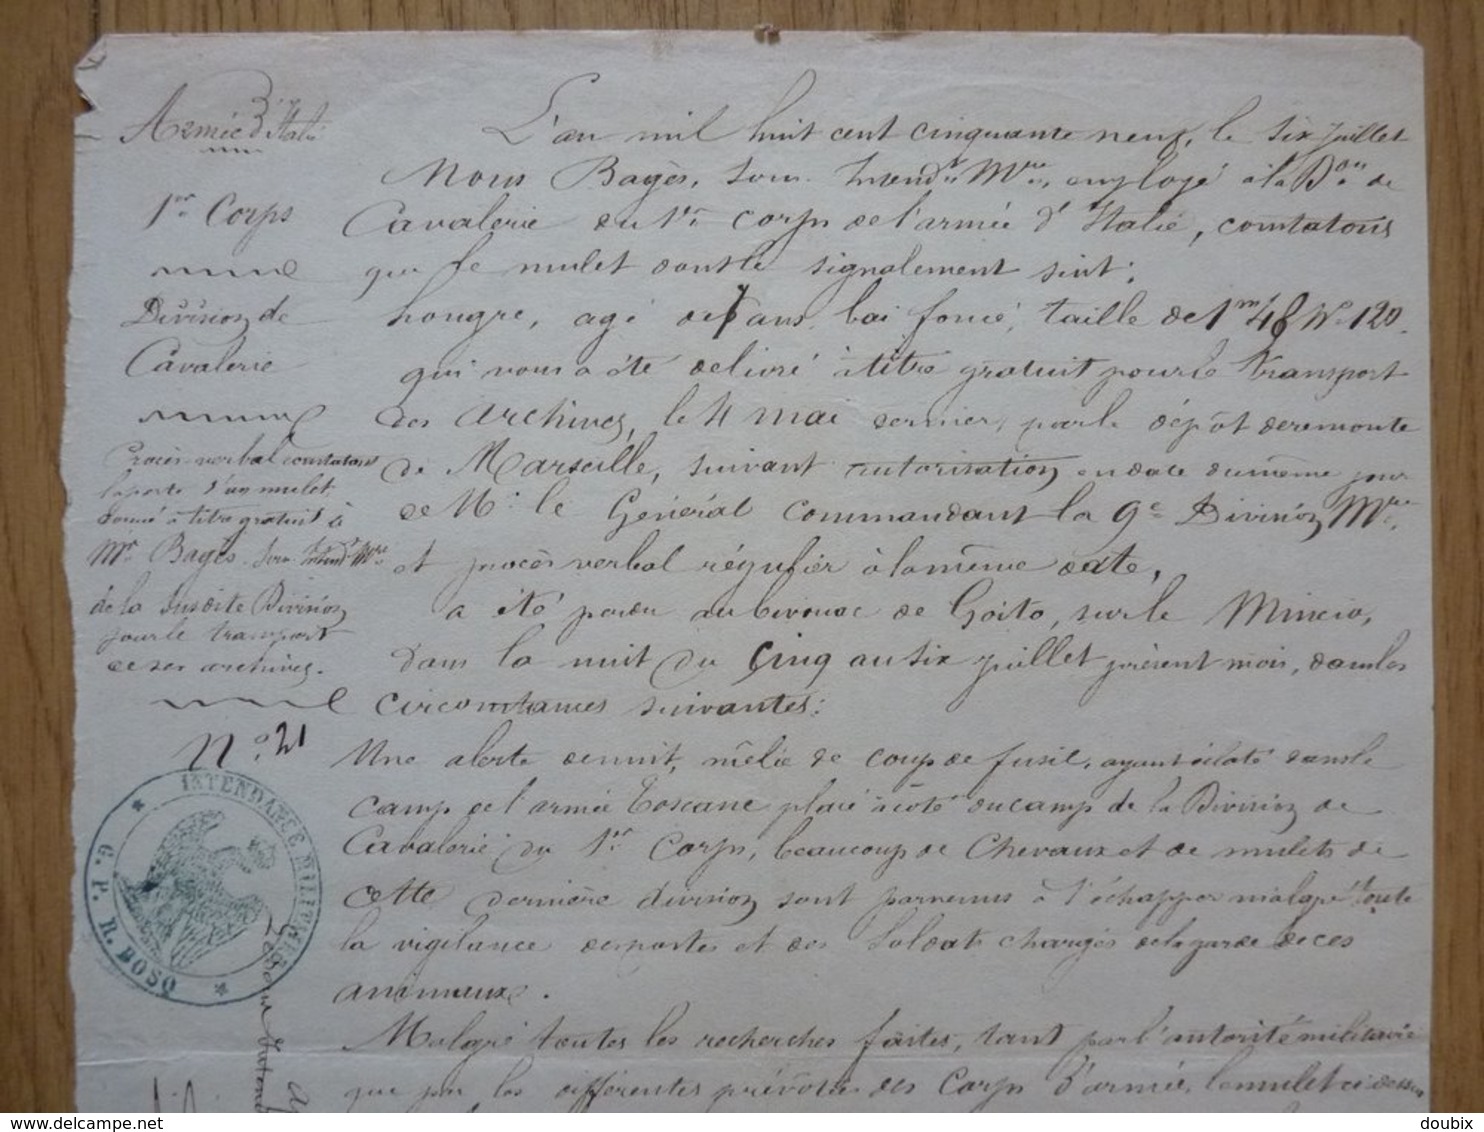 Armée d'Italie
1er Corps
Division de
Cavalerie
Procès-verbal constatant
la perte d'un mulet,
donné à titre gratuit à
Mr Bagès, Sous-Intendt Mre
de la susdite Division
pour le transport
de ses archives.
N° 21
INTENDANCE MILITAIRE
G. P. R. BOSQ
L'an mil huit cent cinquante neuf, le six Juillet
Nous Bagès, Sous-Intendt Mre, employé à la Don de
Cavalerie du 1er Corps de l'armée d'Italie, constatons
que le mulet dont le signalement suit:
hongre, agé de 7 ans, bai foncé, taille de 1m 48 No 120.
qui nous a été délivré à titre gratuit pour le transport
des archives, le 4 mai dernier, par le dépôt de remonte
de Marseille, suivant autorisation en date du même jour
de Mr le Général Commandant la 9e Division Mre,
et procès verbal régulier à la même date,
a été perdu au bivouac de Goito, sur le Mincio,
dans la nuit du cinq au six juillet présent mois, dans les
circonstances suivantes:
Une alerte de nuit, mêlée de coup de fusil, ayant éclaté dans le
camp de l'armée Toscane placé à côté du camp de la Division de
Cavalerie du 1er Corps, beaucoup de Chevaux et de mulets de
cette dernière division sont parvenus à s'échapper malgré toute
la vigilance des postes et des Soldats chargés de la garde de ces
animaux.
Malgré toutes les recherches faites, tant par l'autorité militaire
que par les différentes prévôtés des Corps d'armée, le mulet ci-dessus
doubix